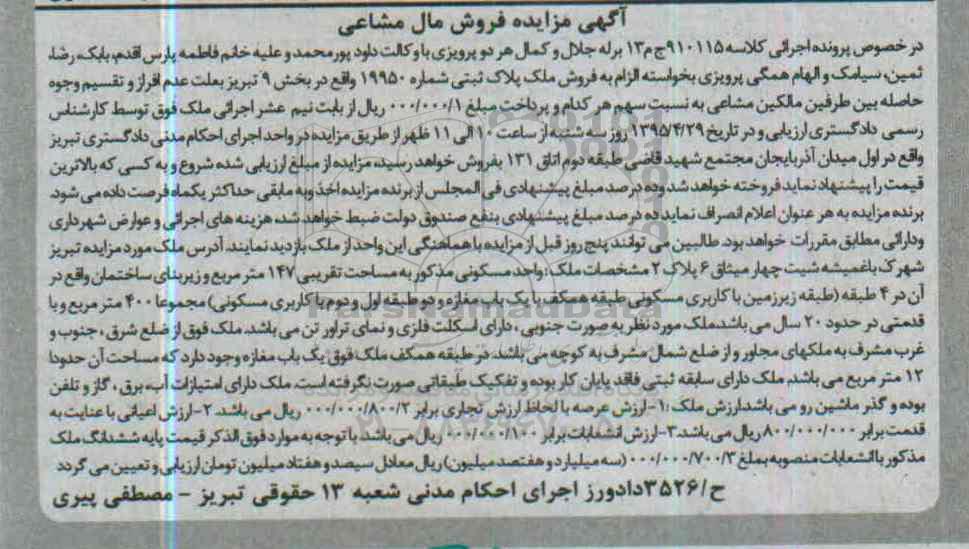 آگهی مزایده فروش مال مشاعی
در خصوص پرونده اجرائی کلاسه ۹۱۰۱۱۵ج م۱۳ برله جلال و کمال هر دو پرویزی با وکالت داود پورمحمد و علیه خانم فاطمه پارس اقدم، بابک، رضا،
ثمین، سیامک و الهام همگی پرویزی بخواسته الزام به فروش ملک پلاک ثبتی شماره ۱۹۹۵۰ واقع در بخش ۹ تبریز بعلت عدم افراز و تقسیم وجوه
حاصله بین طرفین مالکین مشاعی به نسبت سهم هر کدام و پرداخت مبلغ ۰۰۰/۰۰۰/۱ ریال از بابت نیم عشر اجرائی ملک فوق توسط کارشناس
رسمی دادگستری ارزیابی و در تاریخ ۱۳۹۵/۴/۲۹ روز سه شنبه از ساعت ۱۰ الی ۱۱ ظهر از طریق مزایده در واحد اجرای احکام مدنی دادگستری تبریز
واقع در اول میدان آذربایجان مجتمع شهید قاضی طبقه دوم اتاق ۱۳۱ بفروش خواهد رسید، مزایده از مبلغ ارزیابی شده شروع و به کسی که بالاترین
قیمت را پیشنهاد نماید فروخته خواهد شد و ده درصد مبلغ پیشنهادی فی المجلس از برنده مزایده اخذ و به مابقی حداکثر یکماه فرصت داده می شود.
برنده مزایده به هر عنوان اعلام انصراف نماید ده درصد مبلغ پیشنهادی بنفع صندوق دولت ضبط خواهد شد، هزینه های اجرائی و عوارض شهرداری
ودارائی مطابق مقررات خواهد بود. طالبین می توانند پنج روز قبل از مزایده با هماهنگی این واحد از ملک بازدید نمایند. آدرس ملک مورد مزایده تبریز
شهرک باغمیشه شیت چهار میثاق ۶ پلاک ۲ مشخصات ملک: واحد مسکونی مذکور به مساحت تقریبی ۱۴۷ متر مربع و زیربنای ساختمان واقع در
آن در ۴ طبقه (طبقه زیرزمین با کاربری مسکونی طبقه همکف با یک باب مغازه و دو طبقه اول و دوم با کاربری مسکونی) مجموعا ۴۰۰ متر مربع و با
قدمتی در حدود ۲۰ سال می باشد.ملک مورد نظر به صورت جنوبی ، دارای اسکلت فلزی و نمای تراورتن می باشد. ملک فوق از ضلع شرق ، جنوب و
غرب مشرف به ملکهای مجاور و از ضلع شمال مشرف به کوچه می باشد. در طبقه همکف ملک فوق یک باب مغازه وجود دارد که مساحت آن حدودا
۱۲ متر مربع می باشد. ملک دارای سابقه ثبتی فاقد پایان کار بوده و تفکیک طبقاتی صورت نگرفته است. ملک دارای امتیازات آب، برق ، گاز و تلفن
بوده و گذر ماشین رو می باشد.ارزش ملک :۱-ارزش عرصه با لحاظ ارزش تجاری برابر ۰۰۰/۰۰۰/۸۰۰/۲ ریال می باشد. ۲-ارزش اعیانی با عنایت به
قدمت برابر ۸۰۰/۰۰۰/۰۰۰ ریال می باشد.۳-ارزش انشعابات برابر ۰۰۰/۰۰۰/۱۰۰ ریال می باشد. با توجه به موارد فوق الذکر قیمت پایه ششدانگ ملک
مذکور با انشعابات منصوبه بمبلغ ۰۰۰/۰۰۰/۷۰۰/۳ (سه میلیارد و هفتصد میلیون) ریال معادل سیصد و هفتاد میلیون تومان ارزیابی و تعیین می گردد
ح/۳۵۲۶ دادورز اجرای احکام مدنی شعبه ۱۳ حقوقی تبریز - مصطفی پیری
ParsNamadData